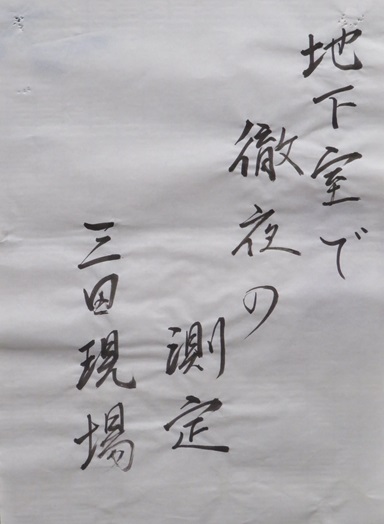 地下室で
徹夜の
測定
三田現場